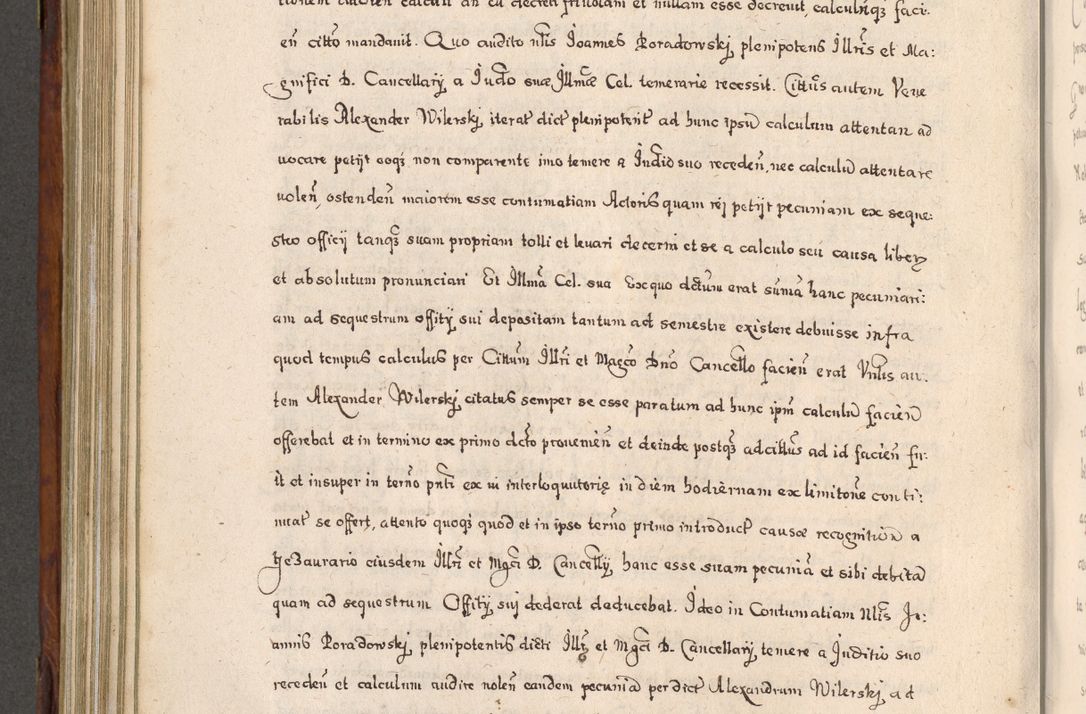 tionem eiusdem calculi an ea decreti friuolam et nullam esse decreuit, calculũqȝ faci:
eñ citto mandauit. Quo audito nłis Joannes Poradowskj plenipotens Jllris et Ma:
gnifici D. Cancellarÿ, a Judo suæ Jllmæ Cel. temerarie recessit. Citt9us autem Vene
rabilis Alexander Wilerskj, iterať dicť plenipotenť ad hunc ipsũ calculum attentan ad
uocare petijt eoqȝ non comparente imo temere a Judio suo receden̄, nec calculũ attentare
uolen̄, ostenden̄ maiorem esse contumatiam Actoris quam rej petijt pecuniam ex seque:
stro officij tanqȝ suam propriam tolli et leuari decerni et se a calculo seu causa liberȝ
et absolutum pronunciari Et Jllmã Cel. sua Ex quo dctum erat sũmã hanc pecuniari:
am ad sequestrum offitÿ sui depositam tantum ad semestre existere debuisse infra
quod tempus calculus per Cittum Jllri et Magco Dno Cancello facien̄ erat Vnłis au:
tem Alexander Wilerskj citatus semper se esse paratum ad hunc ipm calculũ faciend
offerebat et in termino ex primo dcto prouenien̄ et deinde postqȝ adcittus ad id facien̄ fu:
it et insuper in terno pnti ex ui interloquutoriȩ in diem hodiernam ex limitone conti:
nuať se offert, attento quoqȝ quod et in ipso terno primo introducť causæ recognitiõ a
Thesaurario eiusdem Jllri et Mgci D. Cancellÿ, hanc esse suam pecuniã et sibi debitã
quam ad sequestrum Offitÿ suj dederat deducebat. Jdeo in Contumatiam Nłis Jo:
annis Poradowskj, plenipotentis dicti Jllr et Mgci D. Cancellarÿ, temere a Juditio suo
receden̄ et calculum audire nolen̄ eandem pecuniã per dicť Alexandrum Wilerskj ad